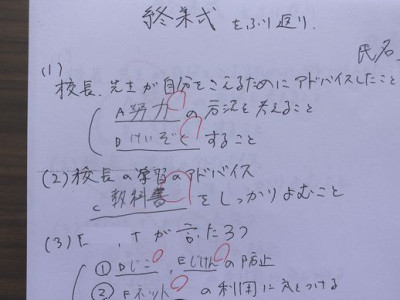 終業式 をふり返り.
氏名
(1)
校長.先生が自分をこえるためにアドバイスしたこと
A 努力 の方法を考えること
B けいぞく すること
(2) 校長の学習のアドバイス
C 教科書 をしっかりよむこと
(3) が言った3つ
① Dじこ, Eじけんの防止
② Fネット の利用に気をつける